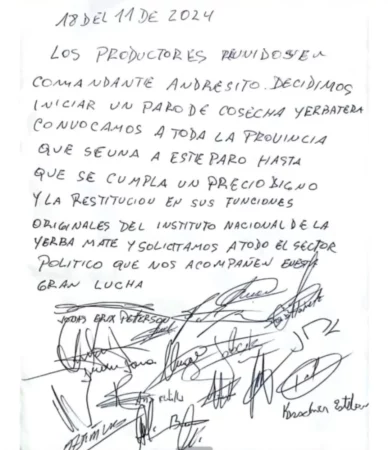 18 DEL 11 DE 2024
LOS PRODUCTORES REUNIDOS EN
COMANDANTE ANDRESITO. DECIDIMOS
INICIAR UN PARO DE COSECHA YERBATERA
CONVOCAMOS A TODA LA PROVINCIA
QUE SE UNA A ESTE PARO HASTA
QUE SE CUMPLA UN PRECIO DIGNO
Y LA RESTITUCION EN SUS FUNCIONES
ORIGINALES DEL INSTITUTO NACIONAL DE LA
YERBA MATE Y SOLICITAMOS A TODO EL SECTOR
POLITICO QUE NOS ACOMPAÑEN EN ESTA
GRAN LUCHA
PETERSON